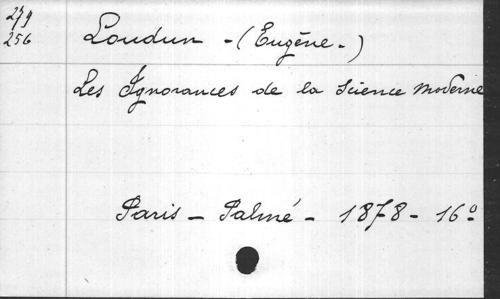 279
256
Loudun - (Eugène.)
Les Ignorances de la Science Moderne
Paris - Palmé - 1878 - 16º